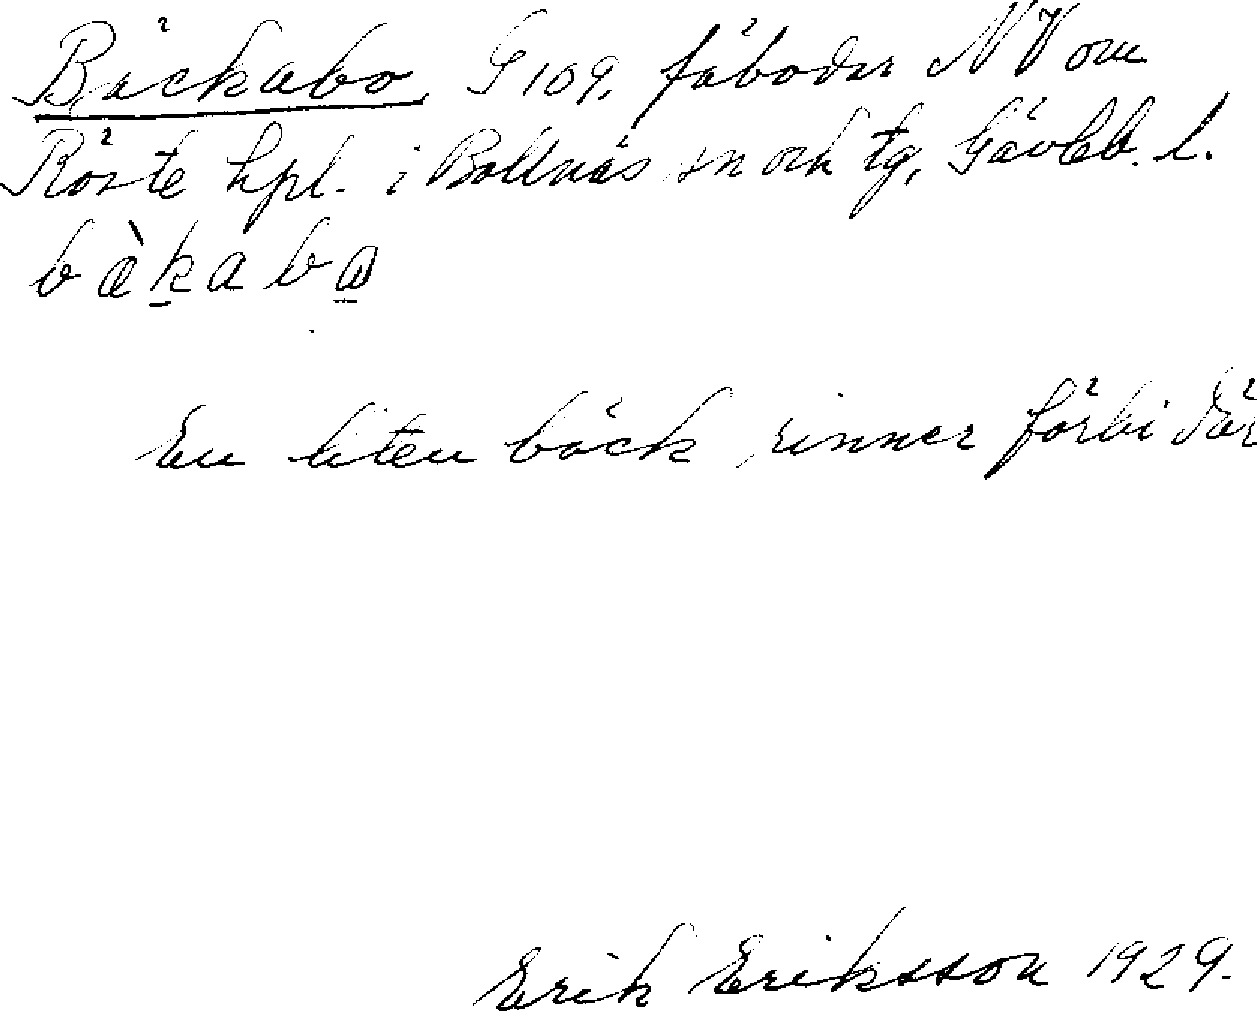 Bäckabo, G 109, fäboder NV om
Röste hpl. i Bollnäs sn och tg, Gävleb. l.
bæ̀kabo
En liten bäck rinner förbi där
Erik Eriksson 1929.